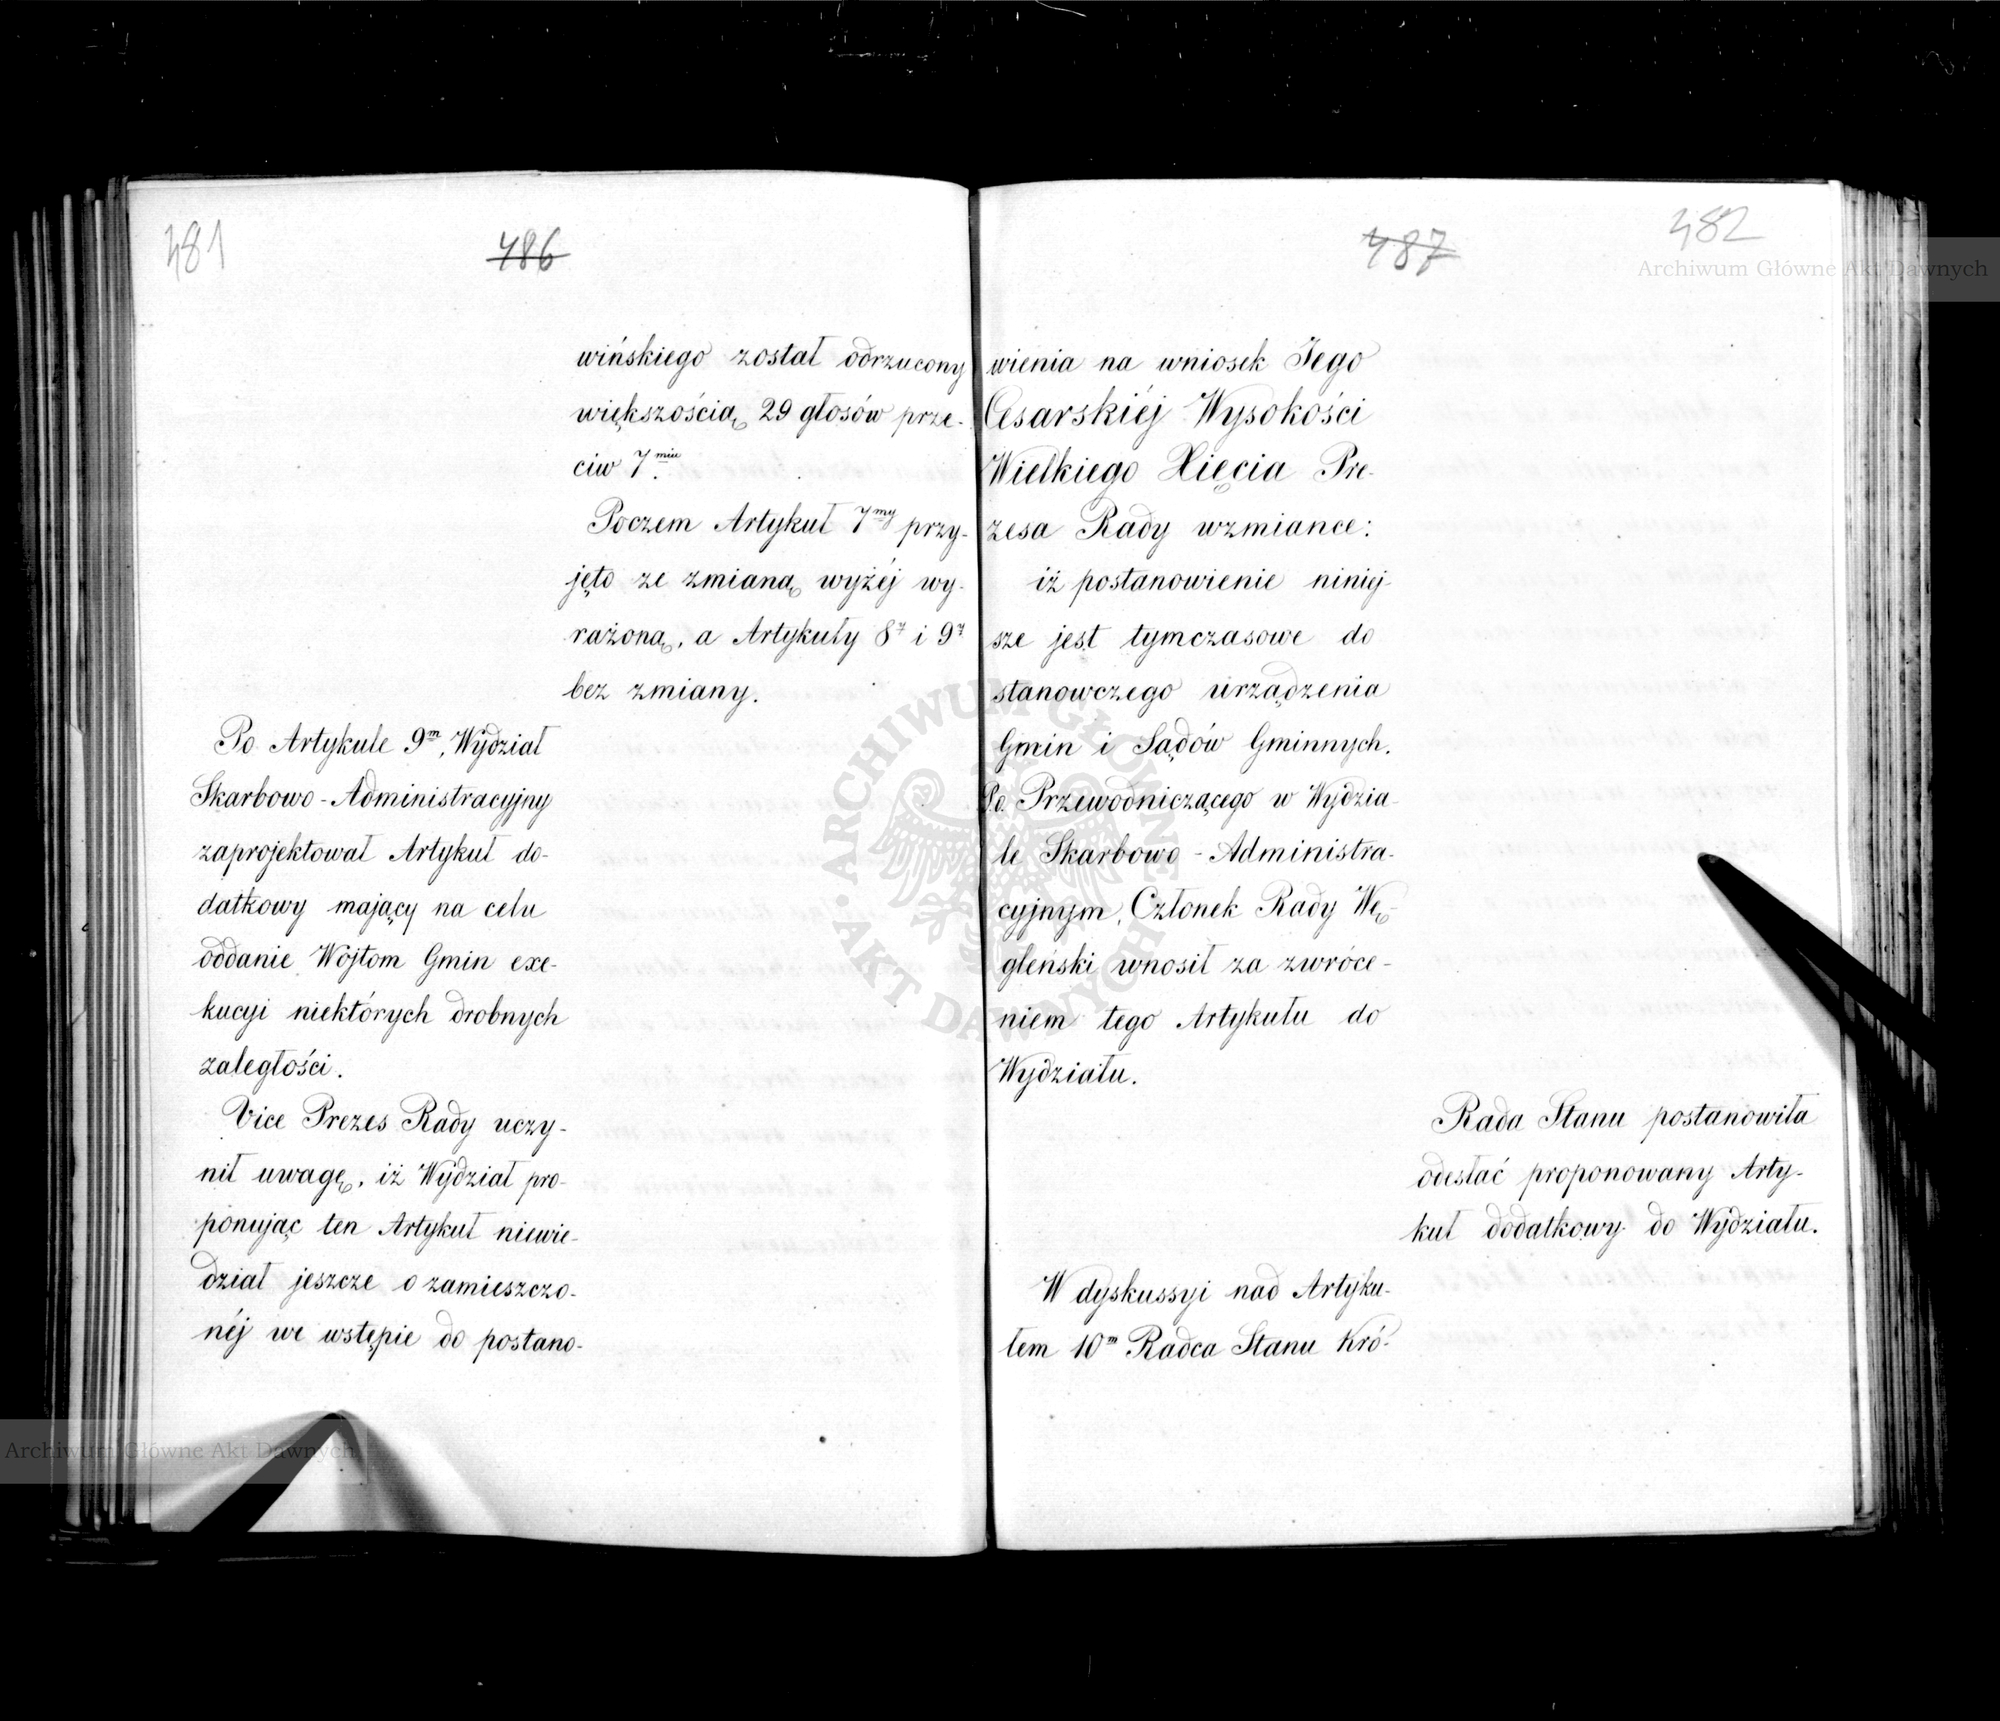 481
486
wińskiego został odrzucony
większością 29 głosów prze-
ciw 7miu.
Poczem Artykuł 7my przy-
jęto ze zmianą wyżéj wy-
rażoną, a Artykuły 8y i 9y
bez zmiany.
Po Artykule 9m, Wydział
Skarbowo-Administracyjny
zaprojektował Artykuł do-
datkowy mający na celu
oddanie Wojtom Gmin exe-
kucyi niektórych drobnych
zaległości.
Vice Prezes Rady uczy-
nił uwagę, iż Wydział pro-
ponując ten Artykuł niewie-
dział jeszcze o zamieszczo-
néj we wstępie do postano-
487
482
wienia na wniosek Jego
Cesarskiéj Wysokości
Wielkiego Xięcia Pre-
zesa Rady wzmiance:
iż postanowienie niniej-
sze jest tymczasowe do
stanowczego urządzenia
Gmin i Sądów Gminnych.
P.o. Przewodniczącego w Wydzia-
le Skarbowo-Administra-
cyjnym, Członek Rady Wę-
gleński wnosił za zwróce-
niem tego Artykułu do
Wydziału.
Rada Stanu postanowiła
odesłać proponowany Arty-
kuł dodatkowy do Wydziału.
W dyskussyi nad Artyku-
łem 10m Radca Stanu Kró-
Archiwum Główne Akt Dawnych
Archiwum Główne Akt Dawnych
ARCHIWUM GŁÓWNE AKT DAWNYCH